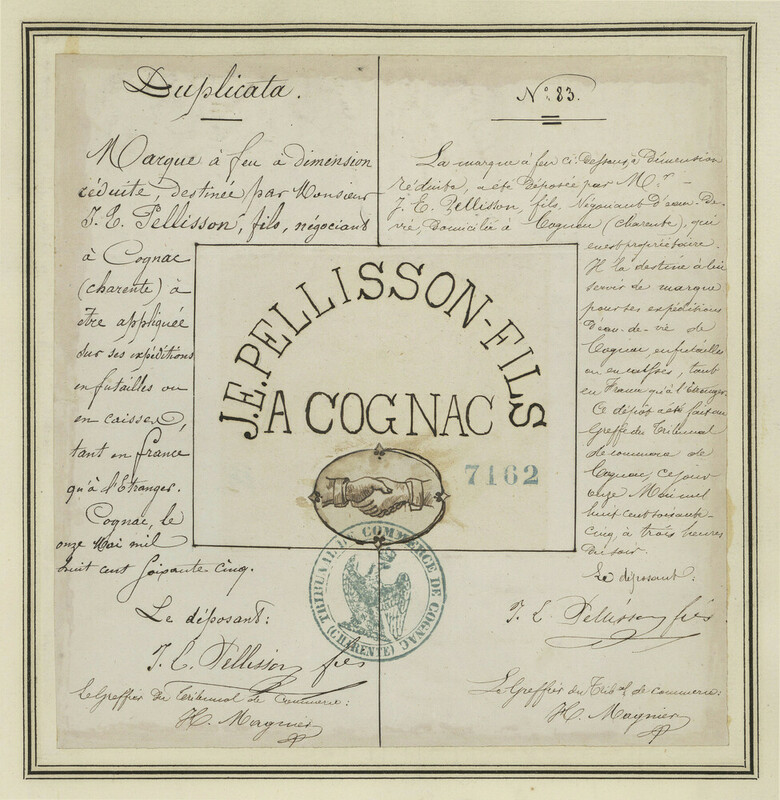 Duplicata.
Marque à feu à dimension
réduite, destinée par Monsieur
J. E. Pellisson, fils, négociant
à Cognac
(charente) à
être appliquée
sur ses expéditions
en futailles ou
en caisses,
tant en france
qu'à l'Etranger.
Cognac, le
onze Mai mil
huit cent soixante cinq.
Le déposant:
J. E. Pellisson fils
Le Greffier du Tribunal de Commerce:
H. Magnier
N° 83.
La marque à feu ci-dessous, à dimension
réduite, a été déposée par Mr
J. E. Pellisson, fils, Négociant d'eau-de-
vie, Domicilié à Cognac (charente), qui
en est propriétaire.
Il la destine à lui
servir de marque
pour ses expéditions
d'eau-de-vie de
Cognac en futailles
ou en caisses, tant
en France qu'à l'Etranger.
Ce dépôt a été fait au
Greffe du Tribunal
de commerce de
Cognac ce jour
onze Mai mil
huit cent soixante-
cinq, à trois heures
du soir.
Le déposant:
J. E. Pellisson fils
Le Greffier du Tribal de commerce:
H. Magnier
J.E. PELLISSON-FILS
A COGNAC
7162
TRIBUNAL DE COMMERCE DE COGNAC
(CHARENTE)